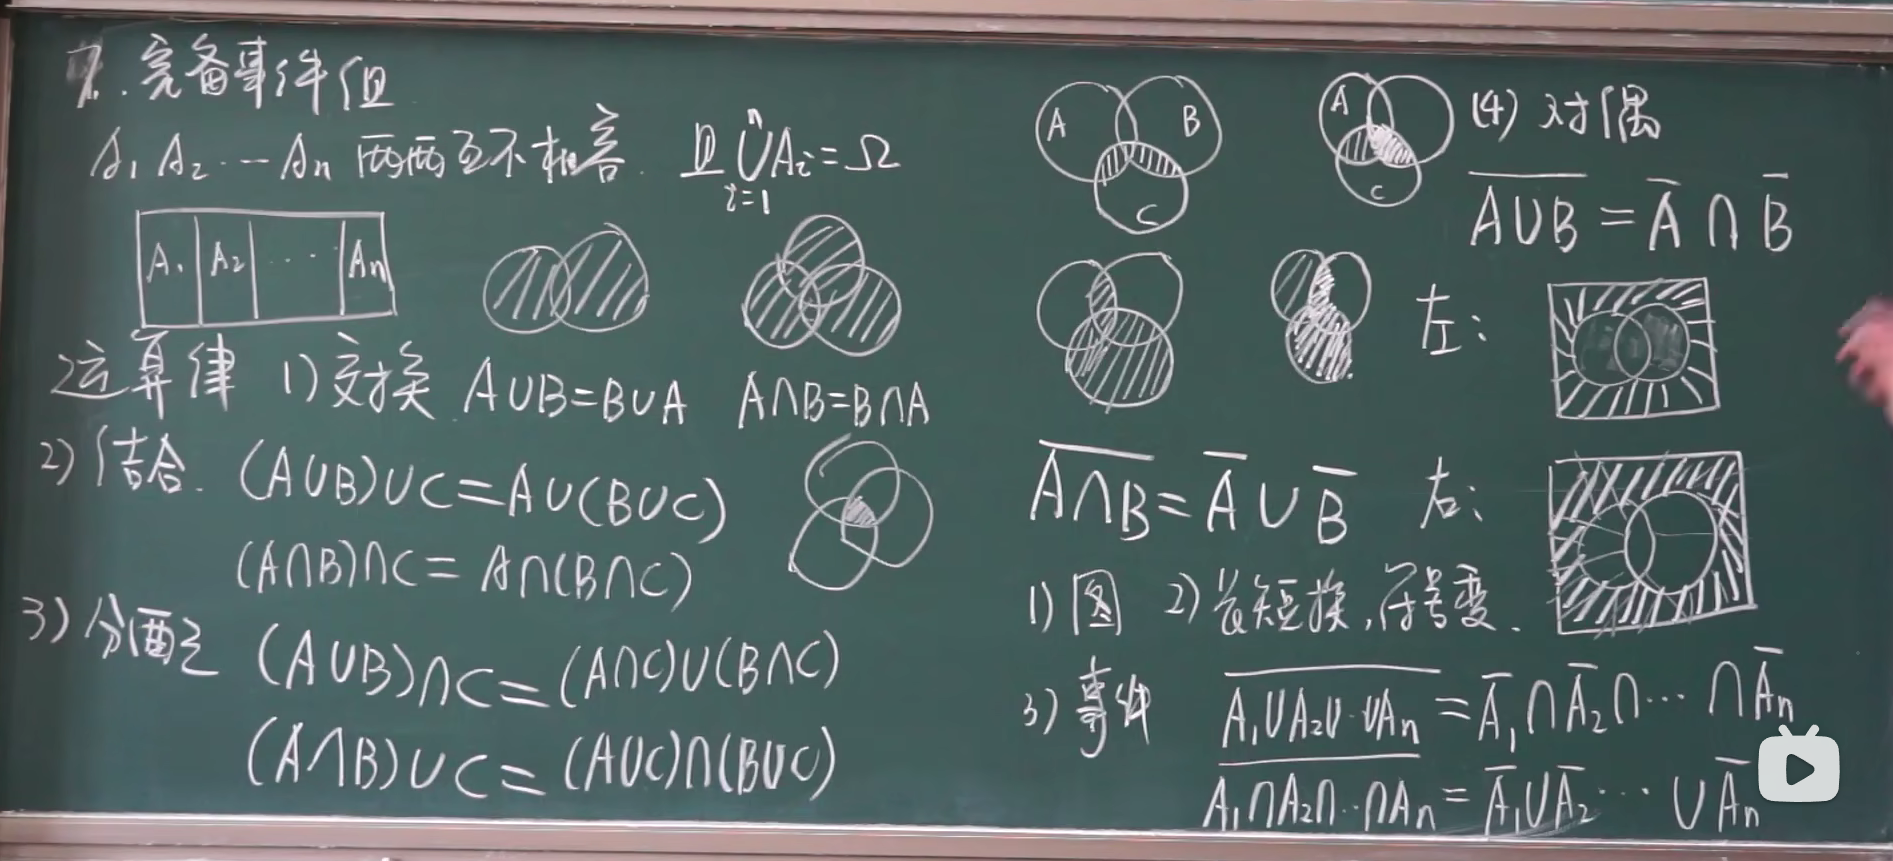 7.完备事件组
A₁ A₂ … Aₙ 两两互不相容. 且 ⋃ᵢ₌₁ⁿ Aᵢ = Ω
A₁ A₂ … Aₙ
运算律 1) 交换 A∪B=B∪A A∩B=B∩A
2) 结合. (A∪B)∪C=A∪(B∪C)
(A∩B)∩C=A∩(B∩C)
3) 分配 (A∪B)∩C=(A∩C)∪(B∩C)
(A∩B)∪C=(A∪C)∩(B∪C)
A B C
A C
(4) 对偶
\overline{A∪B} = \overline{A} ∩ \overline{B}
左:
\overline{A∩B} = \overline{A} ∪ \overline{B} 右:
1) 图 2) 长短换,符号变.
3) 事件 \overline{A₁∪A₂∪··∪Aₙ} = \overline{A₁}∩\overline{A₂}∩… ∩\overline{Aₙ}
\overline{A₁∩A₂∩··∩Aₙ} = \overline{A₁}∪\overline{A₂}… ∪\overline{Aₙ}